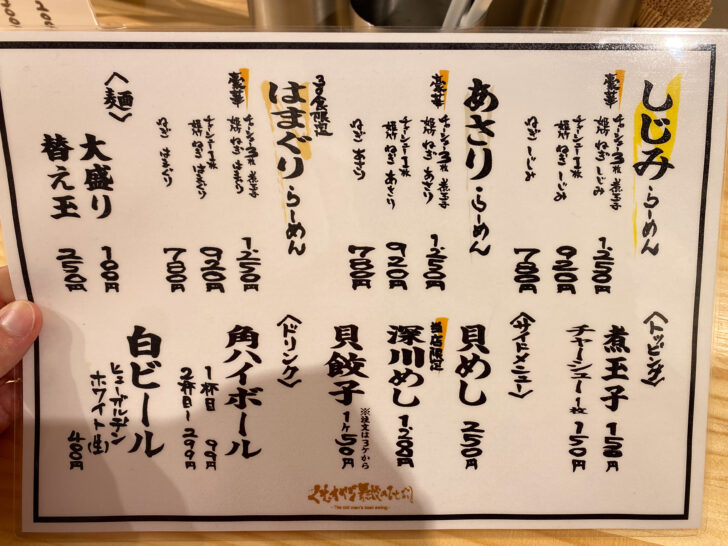 しじみらーめん
豪華 チャーシュー3枚 煮玉子
ねぎ しじみ 1.250円
チャーシュー1枚
ねぎ しじみ 920円
ねぎ しじみ 780円
あさりらーめん
豪華 チャーシュー3枚 煮玉子
ねぎ あさり 1.250円
チャーシュー1枚
ねぎ あさり 920円
ねぎ あさり 780円
はまぐりらーめん
30食限定
豪華 チャーシュー3枚 煮玉子
ねぎ はまぐり 1.250円
チャーシュー1枚
ねぎ はまぐり 920円
ねぎ はまぐり 780円
〈麺〉
大盛り 100円
替え玉 250円
〈トッピング〉
煮玉子 150円
チャーシュー1枚 150円
〈サイドメニュー〉
貝めし 250円
当店限定
深川めし 1.200円
※注文は3ケから
貝餃子 1ヶ50円
〈ドリンク〉
角ハイボール
1杯目 99円
2杯目〜299円
白ビール
ヒューガルデン
ホワイト(生) 400円
- The old man's best swing -